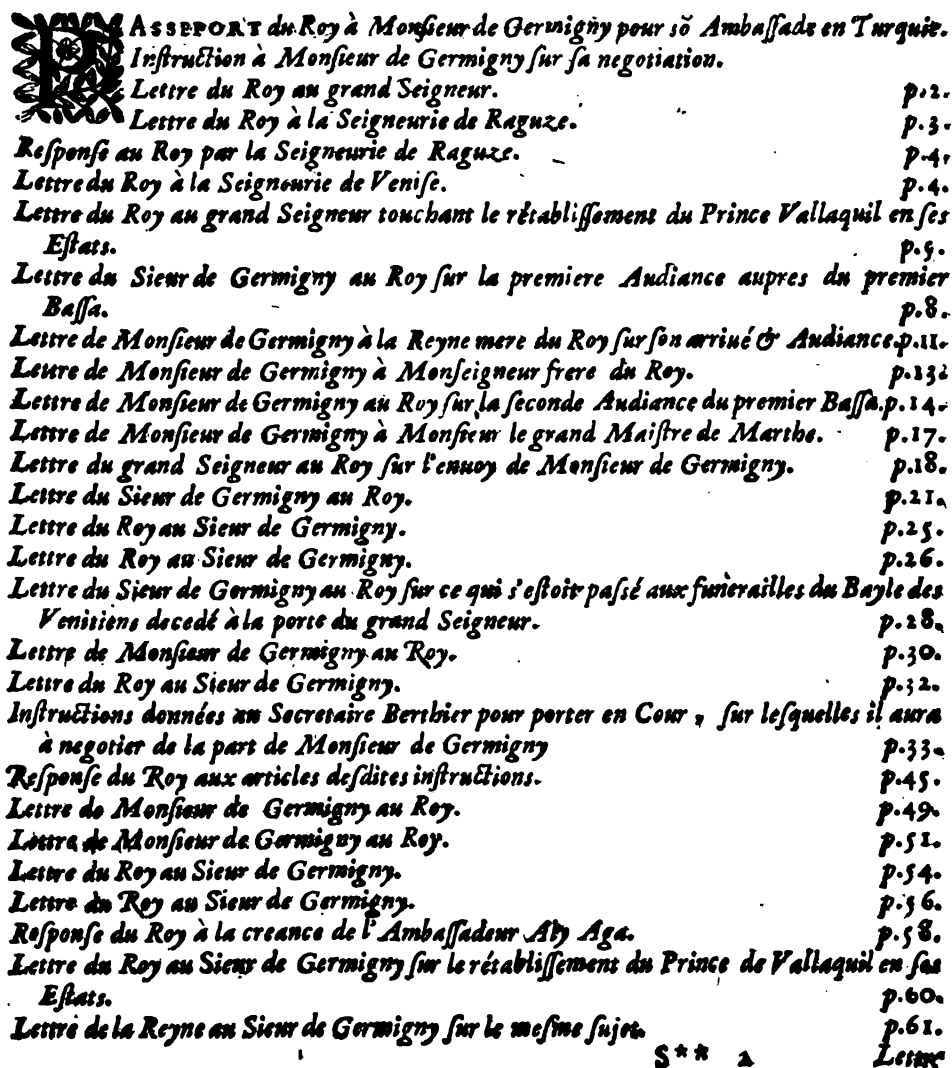 PASSEPORT du Roy à Monſieur de Germigny pour sõ Ambaſſade en Turquie.
Inſtruction à Monſieur de Germigny ſur ſa negotiation.
Lettre du Roy au grand Seigneur. p.2.
Lettre du Roy à la Seigneurie de Raguze. p.3.
Reſponſe au Roy par la Seigneurie de Raguze. p.4.
Lettre du Roy à la Seigneurie de Veniſe. p.4.
Lettre du Roy au grand Seigneur touchant le rétabliſſement du Prince Vallaquil en ſes
Eſtats. p.5.
Lettre du Sieur de Germigny au Roy ſur la premiere Audiance aupres du premier
Baſſa. p.8.
Lettre de Monſieur de Germigny à la Reyne mere du Roy ſur ſon arriué & Audiance. p.11.
Lettre de Monſieur de Germigny à Monſeigneur frere du Roy. p.13.
Lettre de Monſieur de Germigny au Roy ſur la ſeconde Audiance du premier Baſſa. p.14.
Lettre de Monſieur de Germigny à Monſieur le grand Maiſtre de Marthe. p.17.
Lettre du grand Seigneur au Roy ſur l'enuoy de Monſieur de Germigny. p.18.
Lettre du Sieur de Germigny au Roy. p.21.
Lettre du Roy au Sieur de Germigny. p.25.
Lettre du Roy au Sieur de Germigny. p.26.
Lettre du Sieur de Germigny au Roy ſur ce qui s'eſtoit paſsé aux funerailles du Bayle des
Venitiens decedé à la porte du grand Seigneur. p.28.
Lettre de Monſieur de Germigny au Roy. p.30.
Lettre du Roy au Sieur de Germigny. p.32.
Inſtructions données au Secretaire Berthier pour porter en Cour, ſur leſquelles il aura
à negotier de la part de Monſieur de Germigny p.33.
Reſponſe du Roy aux articles deſdites inſtructions. p.45.
Lettre de Monſieur de Germigny au Roy. p.49.
Lettre de Monſieur de Germigny au Roy. p.51.
Lettre du Roy au Sieur de Germigny. p.54.
Lettre du Roy au Sieur de Germigny. p.56.
Reſponſe du Roy à la creance de l'Ambaſſadeur Aly Aga. p.58.
Lettre du Roy au Sieur de Germigny ſur le rétabliſſement du Prince de Vallaquil en ſes
Eſtats. p.60.
Lettre de la Reyne au Sieur de Germigny ſur le meſme ſujet. p.61.
S** 2 Lettre